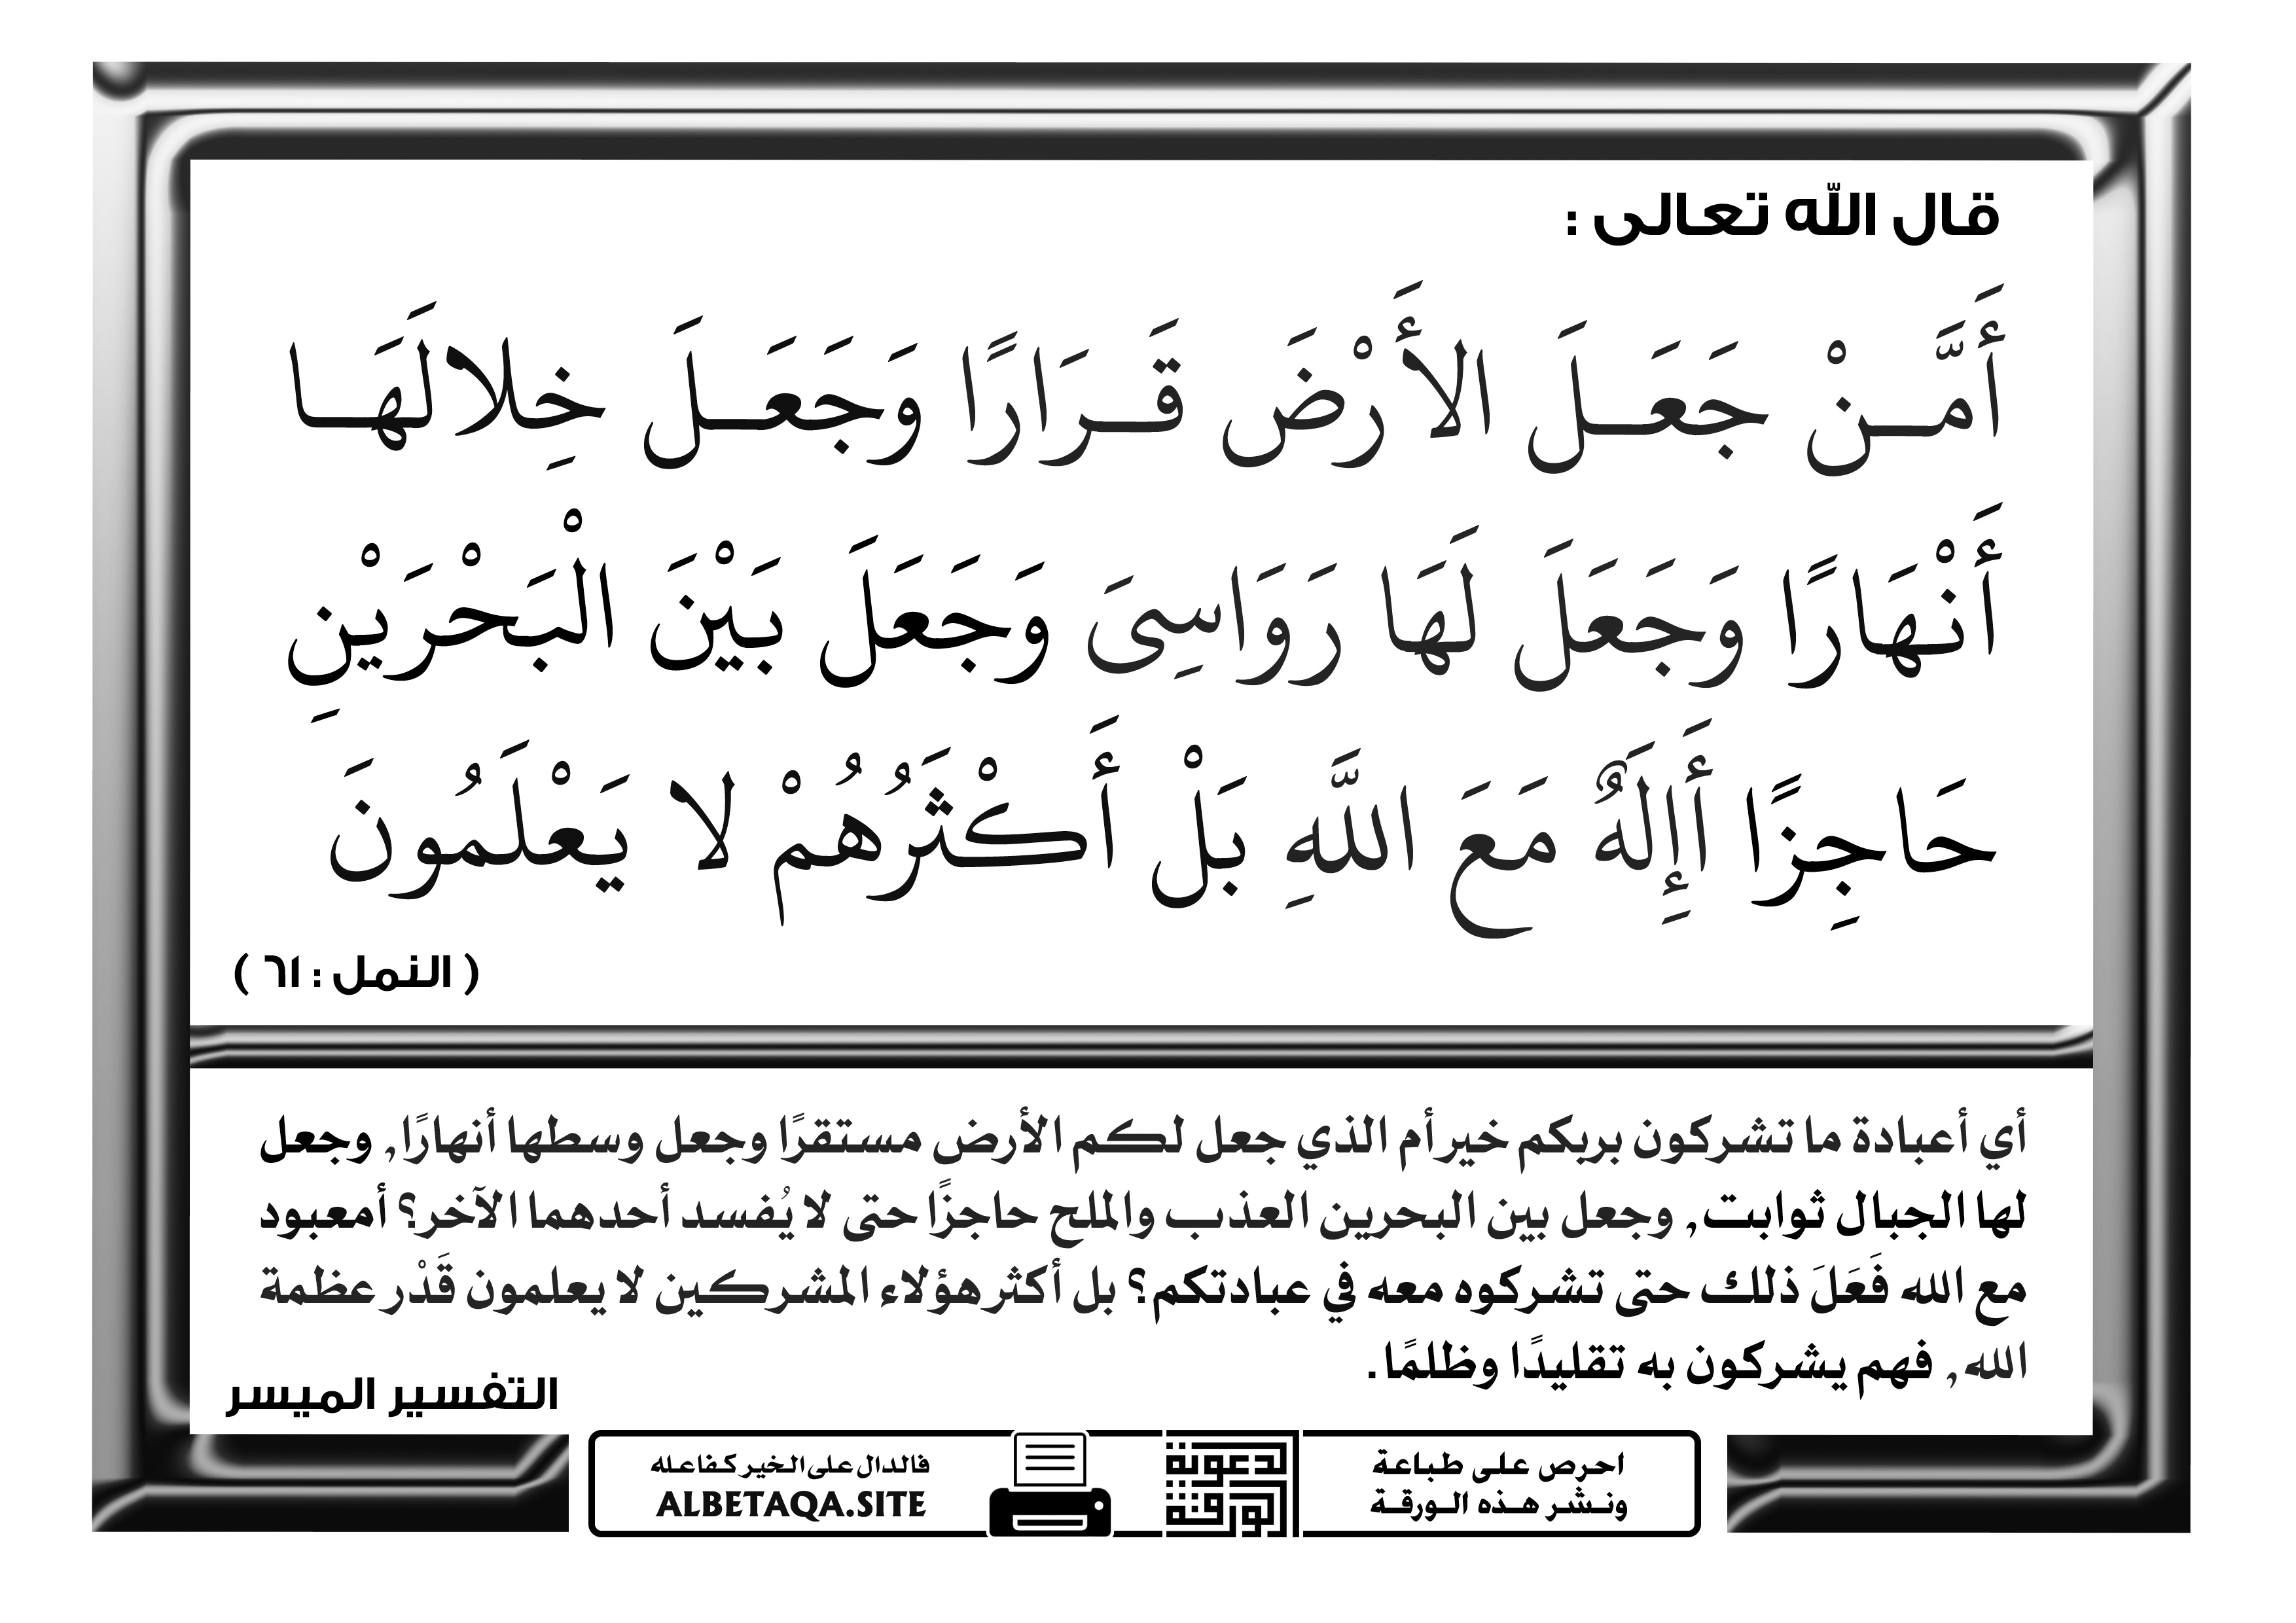 قال الله تعالى :
أَمَّـنْ جَعَـلَ الأَرْضَ قَـرَارًا وَجَعَـلَ خِلالَهَـا
أَنْهَارًا وَجَعَلَ لَهَا رَوَاسِىَ وَجَعَلَ بَيْنَ الْبَحْرَيْنِ
حَاجِزًا أَإِلَهٌ مَعَ اللَّهِ بَلْ أَكْثَرُهُمْ لا يَعْلَمُونَ
( النمل : ٦١ )
أي أعبادة ما تشركون بربكم خير أم الذي جعل لكم الأرض مستقرًا وجعل وسطها أنهارًا, وجعل
لها الجبال ثوابت, وجعل بين البحرين العذب والملح حاجزًا حتى لا يُفسد أحدهما الآخر؟ أمعبود
مع الله فَعَلَ ذلك حتى تشركوه معه في عبادتكم؟ بل أكثر هؤلاء المشركين لا يعلمون قَدْر عظمة
الله, فهم يشركون به تقليدًا وظلمًا.
التفسير الميسر
احرص على طباعة
ونشر هذه الورقة
لدعوية
الورقة
فالدال على الخير كفاعله
ALBETAQA.SITE